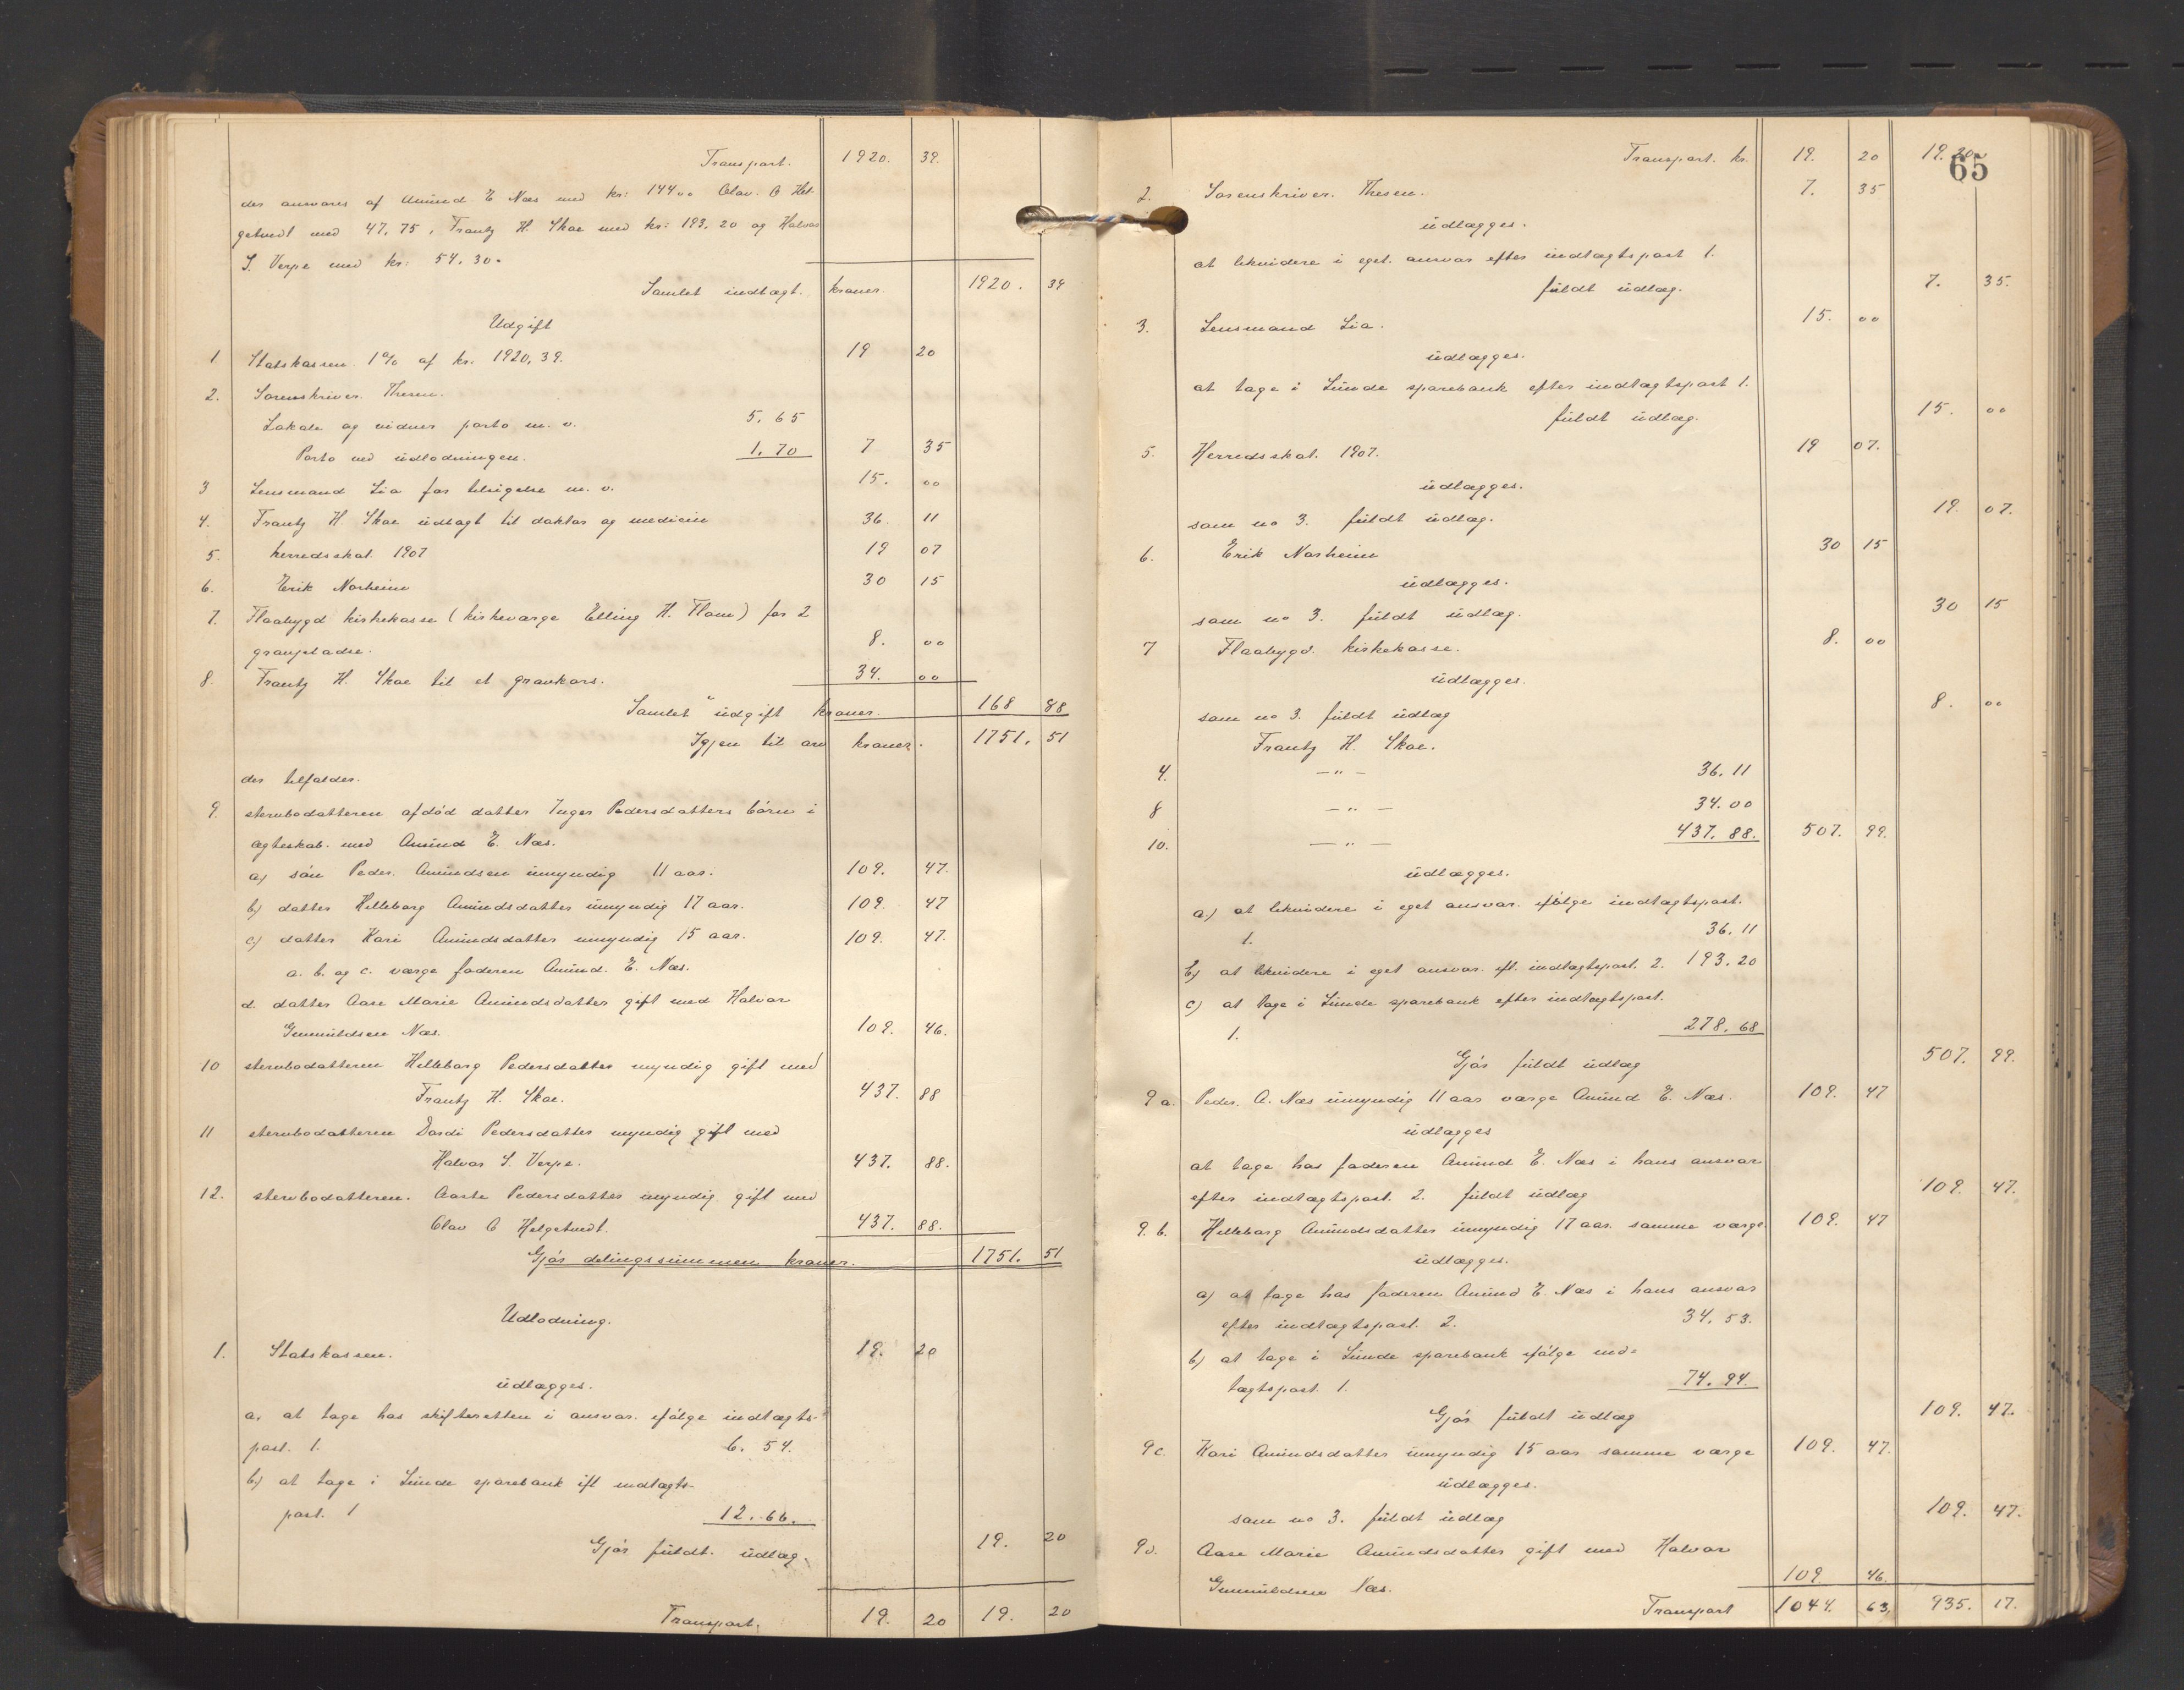 Transport. 1920. 39.
der ansvares af Amund E Næs med kr: 144.00 Olav O Hel-
getvedt med 47,75, Frantz H. Skoe med kr: 193,20 og Halvor
S. Verpe med kr: 54.30.
Samlet indtægt. kroner. 1920. 39
Udgift
1 Statskassen 1% af kr. 1920,39. 19 20
2. Sorenskriver Thesen.
Lokale og vidner porto m. v. 5,65
Porto ved udlodningen. 1,70 7 35
3 Lensmand Lia for tilsigelse m. v. 15. 00
4. Frantz H. Skoe udlagt til doktor og medicin 36. 11
5. herredsskat 1907 19 07
6. Erik Norheim 30 15
7. Flaabygd kirkekasse (kirkeværge Elling H. Flom) for 2
8. 00
8. Frantz H. Skoe til et gravkors. 34. 00
Samlet udgift kroner. 168 88
Igjen til arv kroner. 1751. 51
der tilfalder.
9. stervbodatteren afdød datter Inger Pedersdatters børn i
ægteskab med Amund E. Næs.
a) søn Peder Amundsen umyndig 11 aar. 109. 47.
b) datter Helleborg Amundsdatter umyndig 17 aar. 109. 47
c) datter Kari Amundsdatter umyndig 15 aar. 109. 47.
a. b. og c. værge faderen Amund E. Næs.
d. datter Aase Marie Amundsdatter gift med Halvor
Gunnuldsen Næs. 109. 46.
10 stervbodatteren Helleborg Pedersdatter myndig gift med
Frantz H. Skoe. 437. 88
11 stervbodatteren Dordi Pedersdatter myndig gift med
Halvor S. Verpe. 437. 88.
12. stervbodatteren. Aaste Pedersdatter myndig gift med
Olav O Helgetvedt. 437. 88.
Gjør delingssummen kroner. 1751. 51
Udlodning.
1. Statskassen. 19. 20
udlægges.
a. at tage hos skifteretten i ansvar ifølge indtægts-
post. 1. 6. 54.
b) at tage i Lunde sparebank ift indtægts-
post. 1 12.66.
Gjør fuldt udlæg. 19. 20
Transport. 19. 20 19. 20
65
Transport. kr. 19. 20 19. 20
2. Sorenskriver. Thesen. 7. 35
udlægges.
at likvidere i eget ansvar efter indtægtspost 1.
fuldt udlæg. 7. 35.
3. Lensmand Lia. 15. 00
udlægges.
at tage i Lunde sparebank efter indtægtspost 1.
fuldt udlæg. 15. 00
5. Herredsskat. 1907. 19 07.
udlægges.
som no 3. fuldt udlæg. 19. 07.
6. Erik Norheim 30 15
udlægges.
som no 3. fuldt udlæg. 30 15
7 Flaabygd. kirkekasse. 8. 00
udlægges.
som no 3. fuldt udlæg 8. 00
Frantz H. Skoe.
4. —"— 36. 11
8 —"— 34.00
10. —"— 437. 88. 507. 99.
udlægges.
a.) at likvidere i eget ansvar. ifølge indtægtspost.
1. 36. 11
b) at likvidere i eget ansvar. ift. indtægtspost. 2. 193.20
c) at tage i Lunde sparebank efter indtægtspost.
1. 278.68
Gjør fuldt udlæg 507. 99.
9 a. Peder A. Næs umyndig 11 aar værge Amund E. Næs. 109. 47
udlægges
at tage hos faderen Amund E. Næs i hans ansvar
efter indtægtspost. 2. fuldt udlæg 109. 47.
9. b. Helleborg Amundsdatter umyndig 17 aar. samme værge. 109. 47
udlægges.
a) at tage hos faderen Amund E. Næs i hans ansvar
efter indtægtspost. 2. 34.53.
b) at tage i Lunde sparebank ifølge ind=
tægtspost. 1. 74.94.
Gjør fuldt udlæg 109. 47.
9 c. Kari Amundsdatter umyndig 15 aar samme værge 109. 47.
udlægges.
som no 3. fuldt udlæg 109. 47.
9 d. Aase Marie Amundsdatter gift med Halvor
Gunnuldsen Næs. 109 46.
Transport 1044. 63, 935. 17.